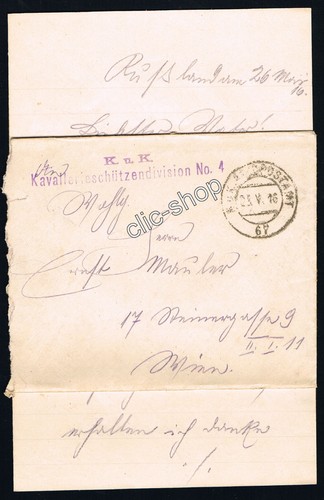 Rußland am 26 Mai
16.
Liebster Vater!
An
K. u. K.
Kavallerieschützendivision No. 4
Wohlg.
Herrn
K.u.K. FELDPOSTAMT
V. 16
67
Ernst Mauler
17 Steinergasse 9
II. I. 11
Wien.
erhalten ich danke
./.
clic-shop